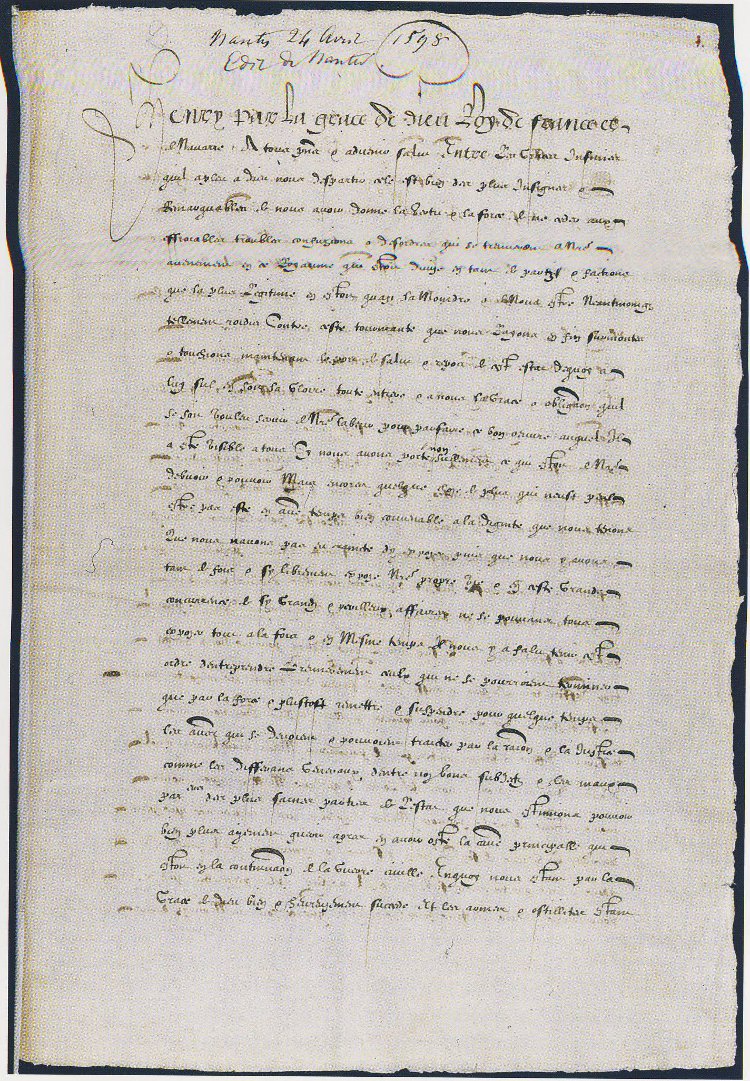 Nantes 24 Avril 1598
Edit de Nantes
Henry par la grace de dieu Roy de france et
de Navarre A tous pñs & advenir salut Entre les graces Infinies
quil a pleu a dieu nous departir celle est bien des plus Insignes &
Remarquables de nous avoir donné la vertu & la force de ne ceder aux
effroiables troubles confusions & desordres qui se trouverent a nre
advenement en ce Royaume qui estoit divisé en tant de partys & factions
que la plus legitime en estoit quasi la Moindre & de Nous estre Neantmoings
tellement roidis Contre ceste tourmante que nous layons en fin surmontée
& touchions maintenant le port de salut & repos de cest estat Dequoy a
luy seul en soit la gloire toute entiere & a nous la grace & obligaon quil
se soit voulu servir de nre labeur pour parfaire ce bon oeuvre auquel Il
a esté visible a tous si nous avons porté non seullement ce qui estoit de nre
debvoir & pouvoir Mais encores quelque chose de plus qui neust peult
estre pas esté en autre temps bien convenable a la dignité que nous tenons
Que nous navons pas eu craincte dy exposer puis que nous y avons
tant de fois & sy librement exposé nre propre vie & en ceste grande
concurrence de sy grandz & perilleux affaires ne se pouvans tous
composer tout a la fois & en Mesme temps Il nous y a falu tenir cest
ordre dentreprendre premierement ceulx qui ne se pourroient terminer
que par la force & plustost remettre & suspendre pour quelque temps
les autres qui se devoient & pouvoient traicter par la raison & la Justice
comme les differans generaux dentre noz bons subjectz & les maux
par[ticuliers] des plus saines parties de lestat que nous estimions pouvoir
bien plus aysement guerir apres en avoir osté la cause principalle qui
estoit en la continuaon de la guerre civille Enquoy nous estant par la
Grace de dieu bien & heureusement succedé Et les armes & ostillitez estans